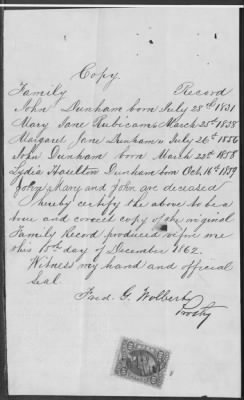 Copy.
Family Record
John Dunham born July 28th 1831
Mary Jane Rubicam March 25th 1838
Margaret Jane Dunham July 26th 1856
John Dunham born March 22d 1858
Lydia Haselton Dunham born Oct. 16th 1859
John, Mary and John are deceased
I hereby certify the above to be a
true and correct copy of the original
Family Record produced before me
this 15th day of December 1862.
Witness my hand and official
seal.
Fred. G. Wolbert
Prothy